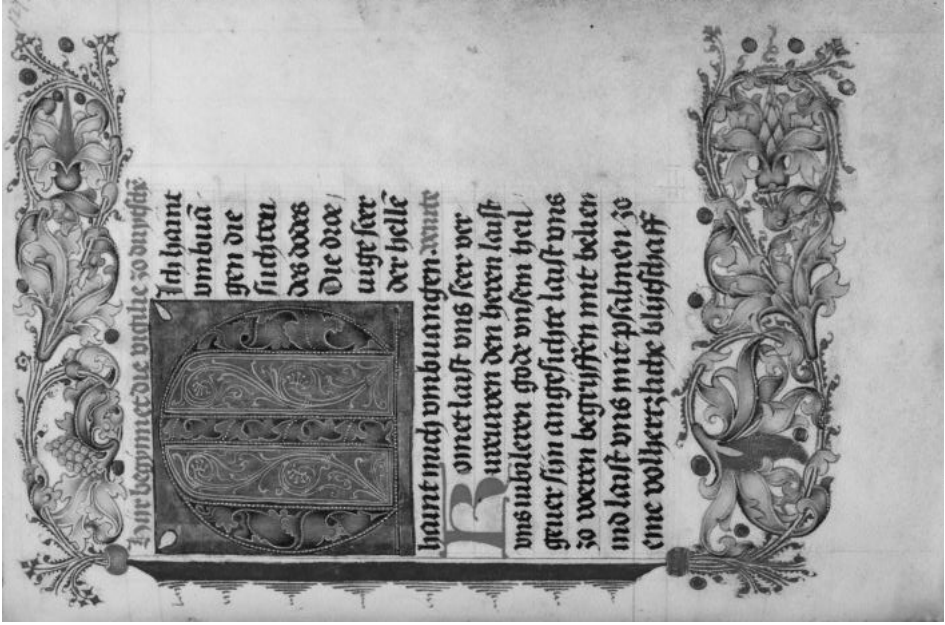 Hyr begynnet die vigilie zo duytschē
MIch haint
vmbuā
gen die
suchten
des dodes
Die droe /
uige seer
der hellē
haint mich vmbuangen
Komet laist vns seer ver
urouwen den heren laist
vns iubileren gode vnsen heil
geuer sijn angesichte laist vns
zo voeren begryffen mit belien
ind laist vns mit psalmen zo
eme volhertzliche blijtschaff